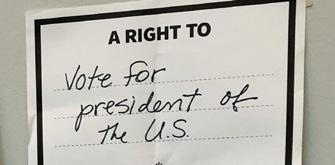 A RIGHT TO
Vote for
president of
the U.S.